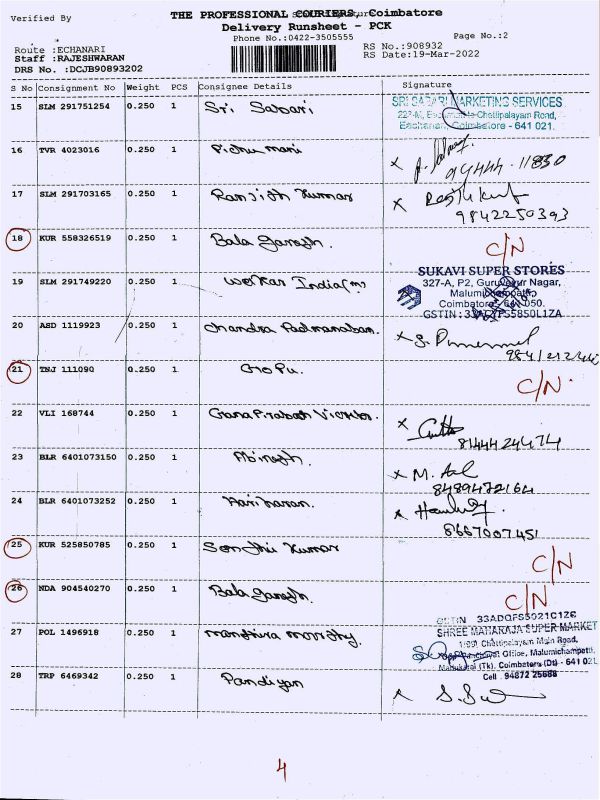 Verified By
THE PROFESSIONAL COURIERS, Coimbatore
Delivery Runsheet - PCK
Phone No.:0422-3505555
Page No.:2
Route :ECHANARI
RS No.:908932
Staff :RAJESHWARAN
RS Date:19-Mar-2022
DRS No. :DCJB90893202
S No Consignment No Weight PCS Consignee Details Signature
15 SLM 291751254 0.250 1 Sri Sabari
SRI SABARI MARKETING SERVICES
Chettipalayam Road,
Eachanari, Coimbatore - 641 021.
16 TVR 4023016 0.250 1
94444-11830
17 SLM 291703165 0.250 1 Ranjith Kumar
9842250393
18 KUR 558326519 0.250 1 Bala Ganesh.
C/N
19 SLM 291749220 0.250 1 India
SUKAVI SUPER STORES
327-A, P2, Guruvayur Nagar,
Malumichampatti,
Coimbatore - 641 050.
GSTIN :
20 ASD 1119923 0.250 1 Chandra Padmanaban.
21 TNJ 111090 0.250 1 Gopu.
C/N
22 VLI 168744 0.250 1
8144424474
23 BLR 6401073150 0.250 1 Abinesh.
8489472164
24 BLR 6401073252 0.250 1 Hariharan.
8667007451
25 KUR 525850785 0.250 1 Kumar
C/N
26 NDA 904540270 0.250 1 Bala Ganesh.
C/N
27 POL 1496918 0.250 1
GSTIN 33ADQFS5021C1Z6
SHREE MAHARAJA SUPER MARKET
Chettipalayam Main Road,
Office, Malumichampatti,
(Tk), Coimbatore (Dt) - 641 021.
Cell : 94872 25688
28 TRP 6469342 0.250 1 Pandiyan
4